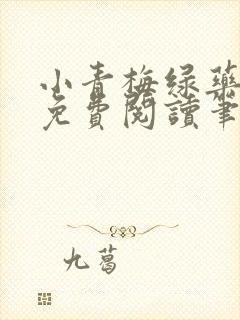 小青梅绿药
免费閱讀筆
九葛